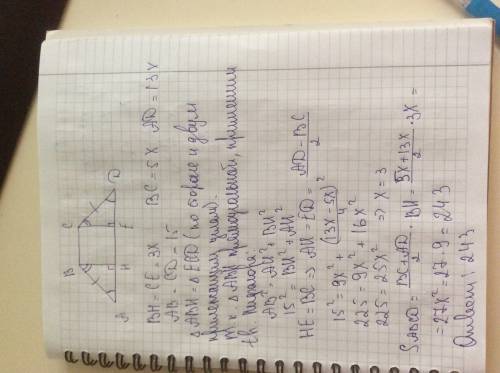 B C
A H E D
BH = CE = 3x BC = 5x AD = 13x
AB = CD = 15
△ABH = △ECD (по стороне и двум
прилежащим углам).
т.к △ABH прямоугольный, применим
th Пифагора
AB² = AH² + BH²
15² = BH² + AH²
HE = BC ⇒ AH = ED = (AD - BC)/2
15² = 9x² + (13x - 5x)²/4
225 = 9x² + 16x²
225 = 25x² ⇒ x = 3
S ABCD = (BC + AD)/2 · BH = (5x + 13x)/2 · 3x =
= 27x² = 27·9 = 243
Ответ: 243